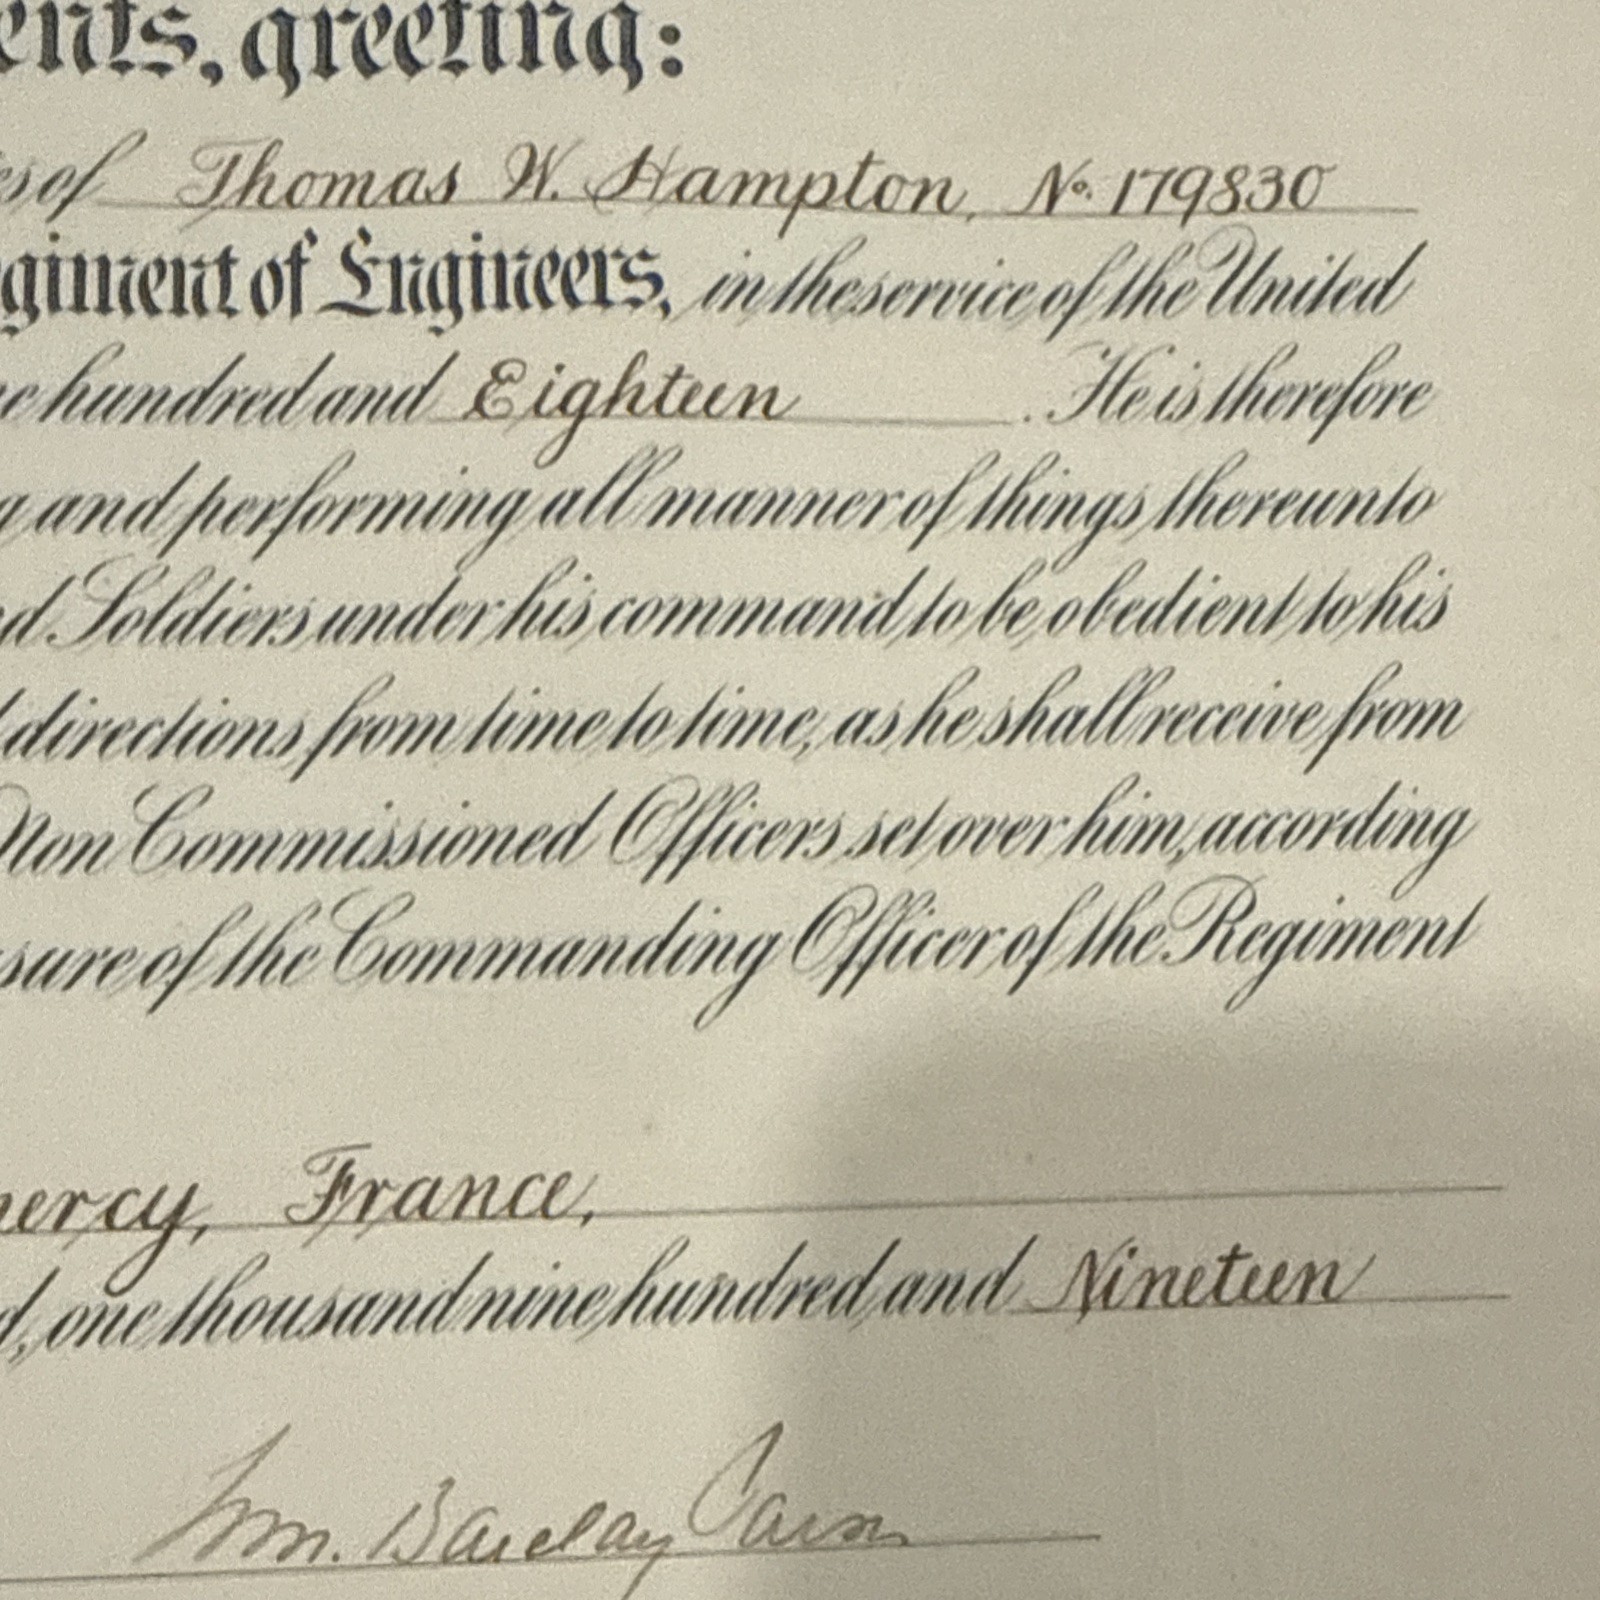 ents, greeting:
es of Thomas W. Hampton, No. 179830
giment of Engineers, in the service of the United
e hundred and Eighteen. He is therefore
g and performing all manner of things thereunto
d Soldiers under his command to be obedient to his
directions from time to time, as he shall receive from
Non Commissioned Officers set over him, according
sure of the Commanding Officer of the Regiment
ercy, France,
d, one thousand nine hundred and Nineteen
Wm. Barclay Parsons